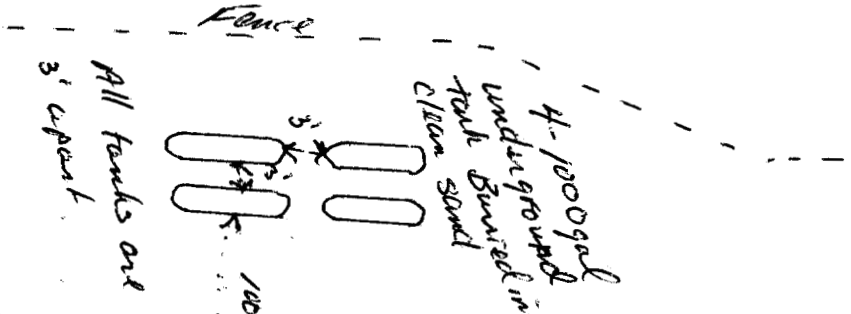 Fence
4-1000gal
underground
tank Burried in
clean sand
3'
3'
All tanks are
3' apart
100